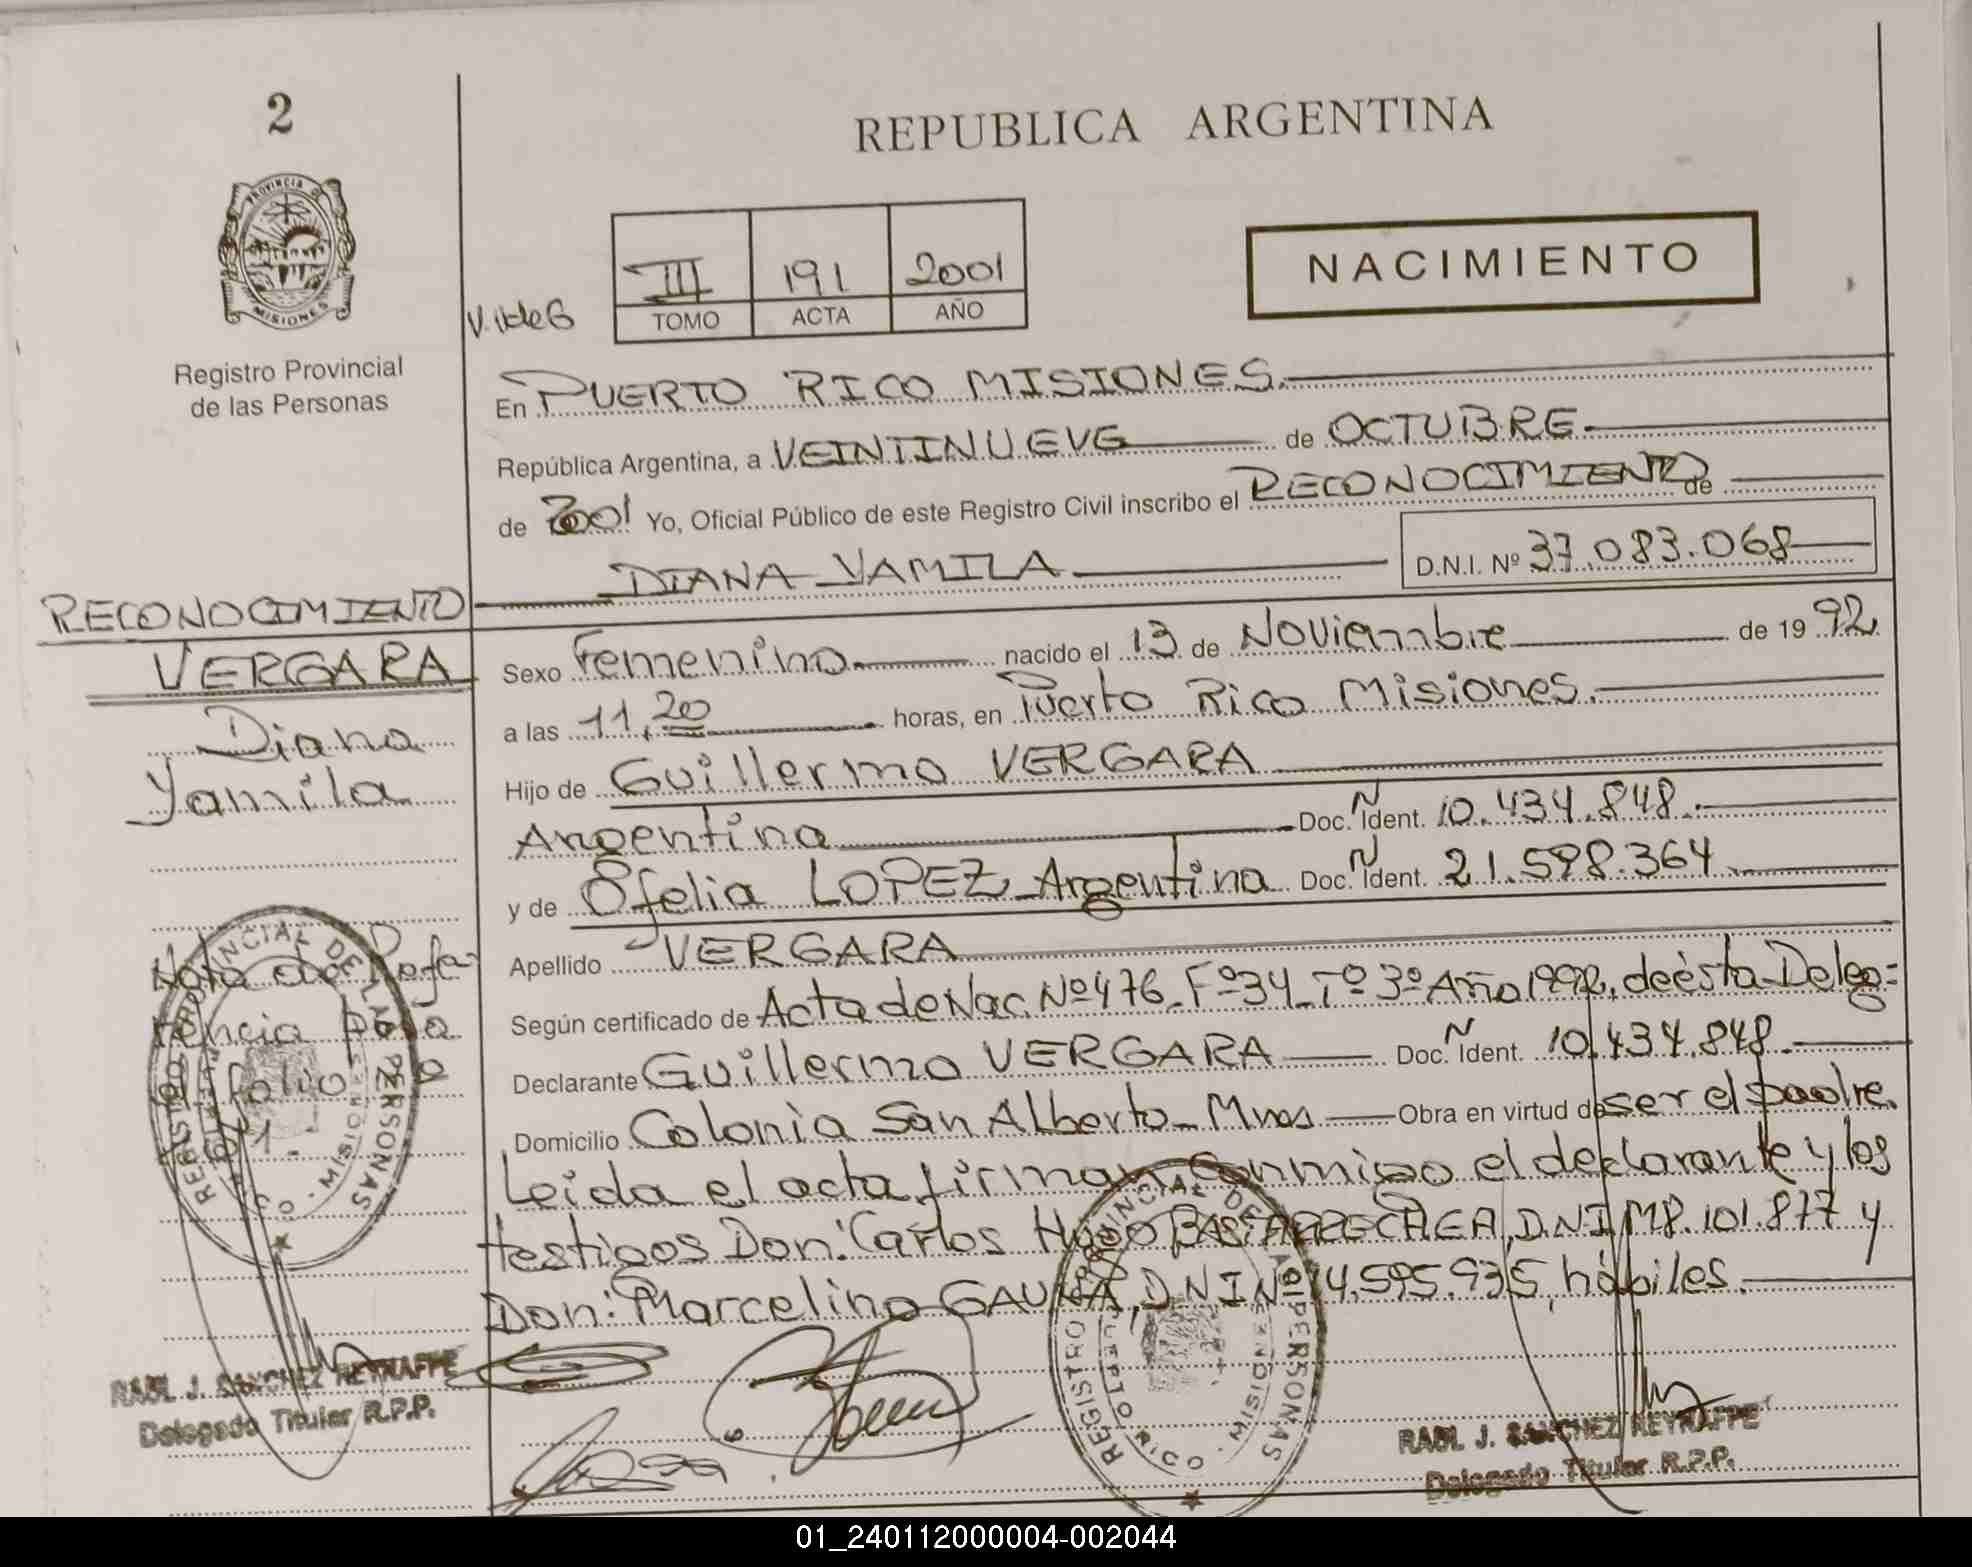 2
REPUBLICA ARGENTINA
PROVINCIA DE
MISIONES
Registro Provincial
de las Personas
III 191 2001
TOMO ACTA AÑO
NACIMIENTO
En PUERTO RICO MISIONES.
República Argentina, a VEINTINUEVE de OCTUBRE.
de 2001 Yo, Oficial Público de este Registro Civil inscribo el RECONOCIMIENTO de
DIANA YAMILA D.N.I. Nº 37.083.068
RECONOCIMIENTO
VERGARA
Diana
Yamila
Sexo Femenino nacido el 13 de Noviembre de 1992.
a las 11,20 horas, en Puerto Rico Misiones.
Hijo de Guillermo VERGARA
Argentina Doc. N Ident. 10.434.848.
y de Ofelia LOPEZ Argentina Doc. N Ident. 21.598.364
Apellido VERGARA
Según certificado de Acta de Nac. Nº 476 Fº 34 Tº 3º Año 1992, de ésta Delega=
Declarante Guillermo VERGARA Doc. N Ident. 10.434.848.
Domicilio Colonia San Alberto - Mnes Obra en virtud de ser el padre.
Leida el acta firman conmigo el declarante y los
testigos Don: Carlos Hugo BASTARRECHEA, D.N.I M8.101.877 y
Don: Marcelino GAUNA, D N I Nº 14.595.935, hábiles.
Nota de Refe-
rencia
folio
REGISTRO PROVINCIAL DE LAS PERSONAS
MISIONES
RAUL J. SANCHEZ REYNAFFE
Delegado Titular R.P.P.
REGISTRO PROVINCIAL DE LAS PERSONAS
PUERTO RICO
MISIONES
RAUL J. SANCHEZ REYNAFFE
Delegado Titular R.P.P.
01_240112000004-002044